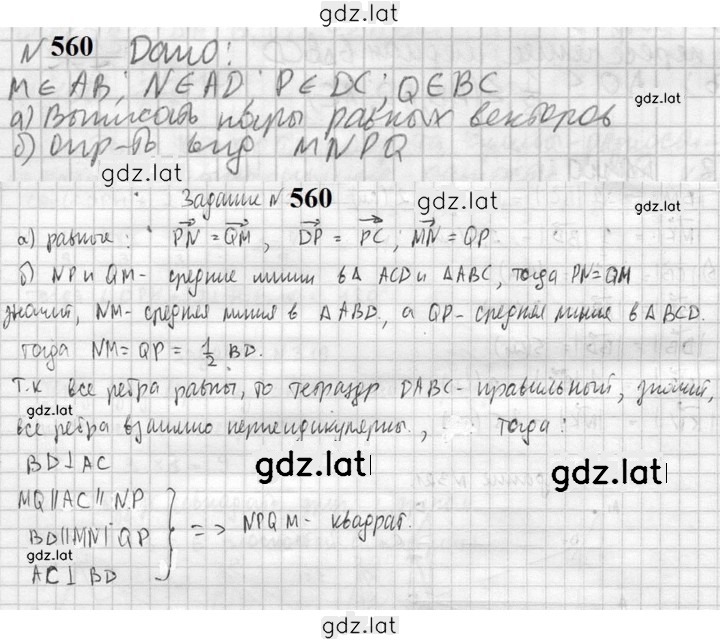 gdz.lat
N 560 Дано:
M ∈ AB; N ∈ AD; P ∈ DC; Q ∈ BC
gdz.lat
а) Выписать пары равных векторов
б) Опр-ть вид MNPQ
gdz.lat
Задание N 560
gdz.lat
а) равные: PN = QM, DP = PC, MN = QP
б) NP и QM - средние линии в Δ ACD и Δ ABC, тогда PN = QM
значит, NM - средняя линия в Δ ABD, а QP - средняя линия в Δ BCD.
тогда NM = QP = 1/2 BD.
Т.к все ребра равны, то тетраэдр DABC - правильный, значит,
gdz.lat
все ребра взаимно перпендикулярны, тогда:
BD ⊥ AC
gdz.lat
gdz.lat
MQ || AC || NP
BD || MN || QP => NPQM - квадрат.
gdz.lat
AC ⊥ BD
gdz.lat